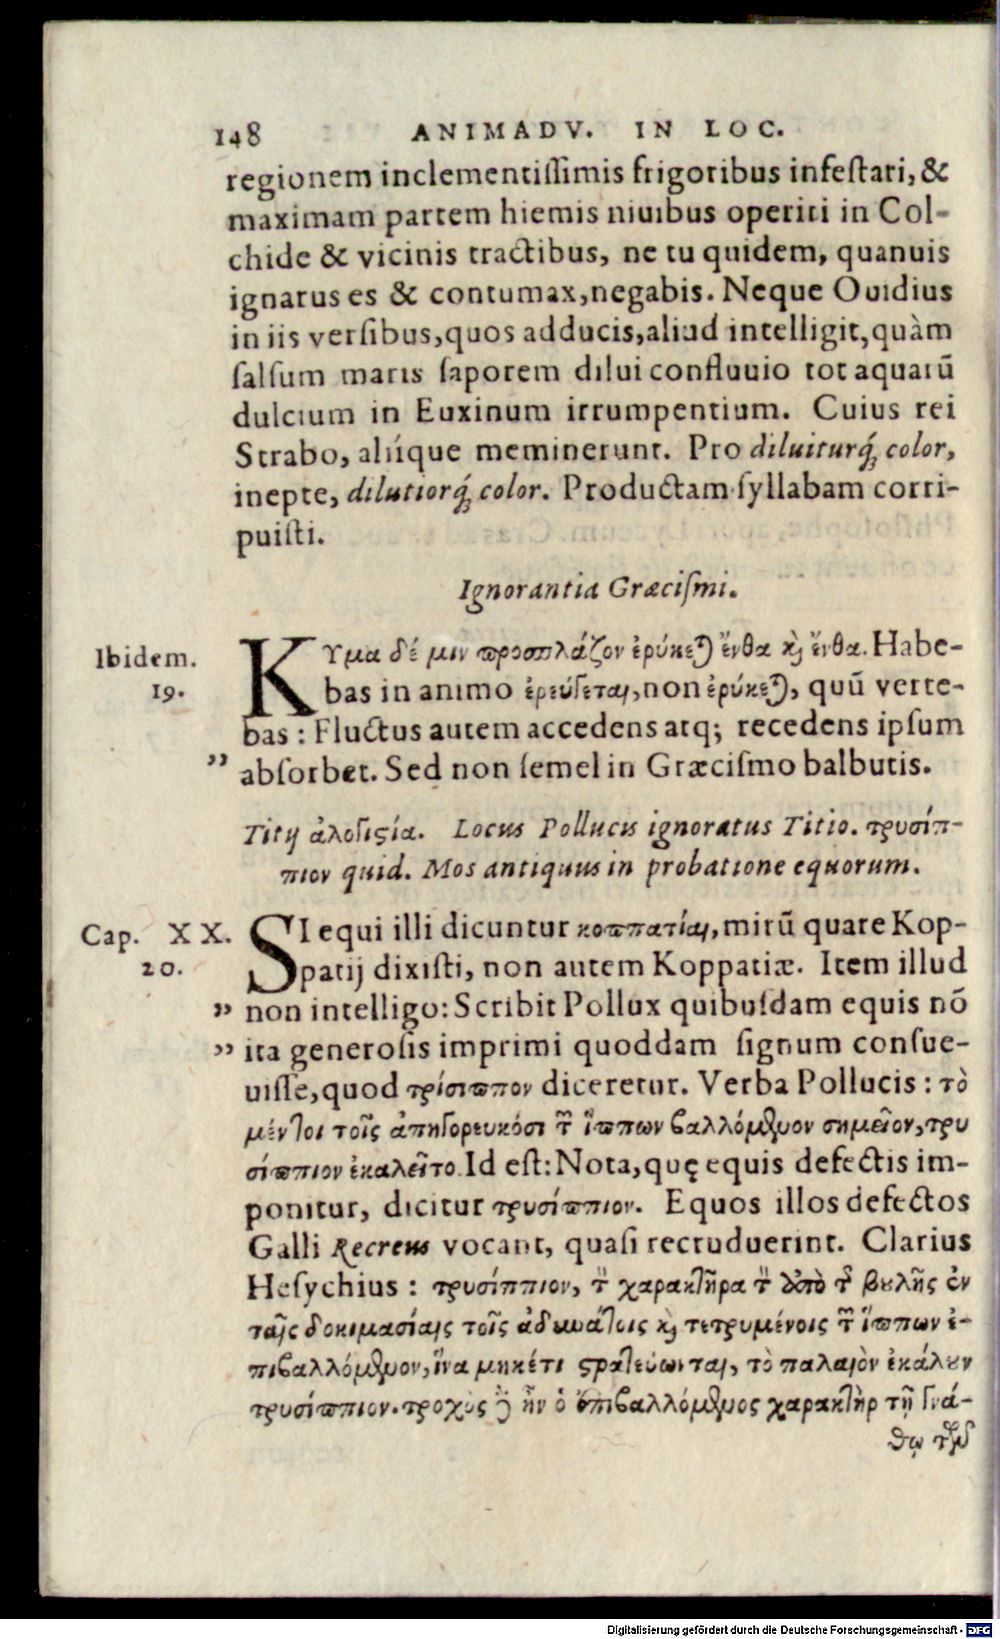 148 ANIMADV. IN LOC.
regionem inclementissimis frigoribus infestari, &
maximam partem hiemis niuibus operiri in Col-
chide & vicinis tractibus, ne tu quidem, quanuis
ignarus es & contumax, negabis. Neque Ouidius
in iis versibus, quos adducis, aliud intelligit, quàm
salsum maris saporem dilui confluuio tot aquarū
dulcium in Euxinum irrumpentium. Cuius rei
Strabo, aliíque meminerunt. Pro diluiturq́; color,
inepte, dilutiorq́; color. Productam syllabam corri-
puisti.
Ignorantia Græcismi.
Ibidem.
19.
ΚΥμα δέ μιν προσπλάζον ἐρύκεται ἔνθα καὶ ἔνθα. Habe-
bas in animo ἐρεύγεται, non ἐρύκεται, quū verte-
bas: Fluctus autem accedens atq; recedens ipsum
” absorbet. Sed non semel in Græcismo balbutis.
Titij ἀλογιστία. Locus Pollucis ignoratus Titio. τρυσίπ-
πιον quid. Mos antiquus in probatione equorum.
Cap. XX.
20.
SI equi illi dicuntur κοππατίαι, mirū quare Kop-
patij dixisti, non autem Koppatiæ. Item illud
” non intelligo: Scribit Pollux quibusdam equis nō
” ita generosis imprimi quoddam signum consue-
uisse, quod τρίσιππον diceretur. Verba Pollucis: τὸ
μέντοι τοῖς ἀπηγορευκόσι τῶν ἵππων βαλλόμενον σημεῖον, τρυ
σίππιον ἐκαλεῖτο. Id est: Nota, quę equis defectis im-
ponitur, dicitur τρυσίππιον. Equos illos defectos
Galli Recreus vocant, quasi recruduerint. Clarius
Hesychius: τρυσίππιον, τὸν χαρακτῆρα τὸν ὑπὸ τῆς βουλῆς ἐν
ταῖς δοκιμασίαις τοῖς ἀδυνάτοις καὶ τετρυμένοις τῶν ἵππων ἐ-
πιβαλλόμενον, ἵνα μηκέτι στρατεύωνται, τὸ παλαιὸν ἐκάλουν
τρυσίππιον. τροχὸς δὲ ἦν ὁ ἐπιβαλλόμενος χαρακτὴρ τῇ γνά-
θῳ τῶν
Digitalisierung gefördert durch die Deutsche Forschungsgemeinschaft - DFG